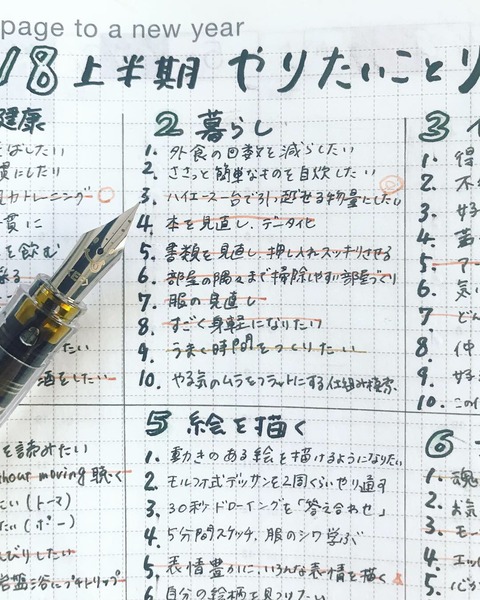 page to a new year
18 上半期 やりたいことリ
健康
ばしたい
慣にしたい
トレーニング
慣に
を飲む
たい
酒をしたい
2 暮らし
1. 外食の回数を減らしたい
2. ささっと簡単なものを自炊したい
3. ハイエース一台で引っ越せる物量にしたい
4. 本を見直し、データ化
5. 書類を見直し押し入れスッキリさせる
6. 部屋の隅々まで掃除しやすい部屋づくり
7. 服の見直し
8. すごく身軽になりたい
9. うまく時間をつくりたい
10. やる気のムラをフラットにする仕組み模索
3
1. 得
2. 不
3. 好
4.
5. ア
6. 気
7. どん
8. 仲
9. 好
10. この
を読みたい
thout moving 聴く
たい(トーマ)
たい(ポー)
んびりしたい
岩盤浴にプチトリップ
5 絵を描く
1. 動きのある絵を描けるようになりたい
2. モルフォ式デッサンを2周くらいやり直す
3. 30秒ドローイングを「答え合わせ」
4. 5分間スケッチ、服のシワ学ぶ
5. 表情豊かに、いろんな表情を描く
6. 自分の絵柄を見つけたい
6
1. 魂
2. お気
3. モー
4. エッ
5. 心